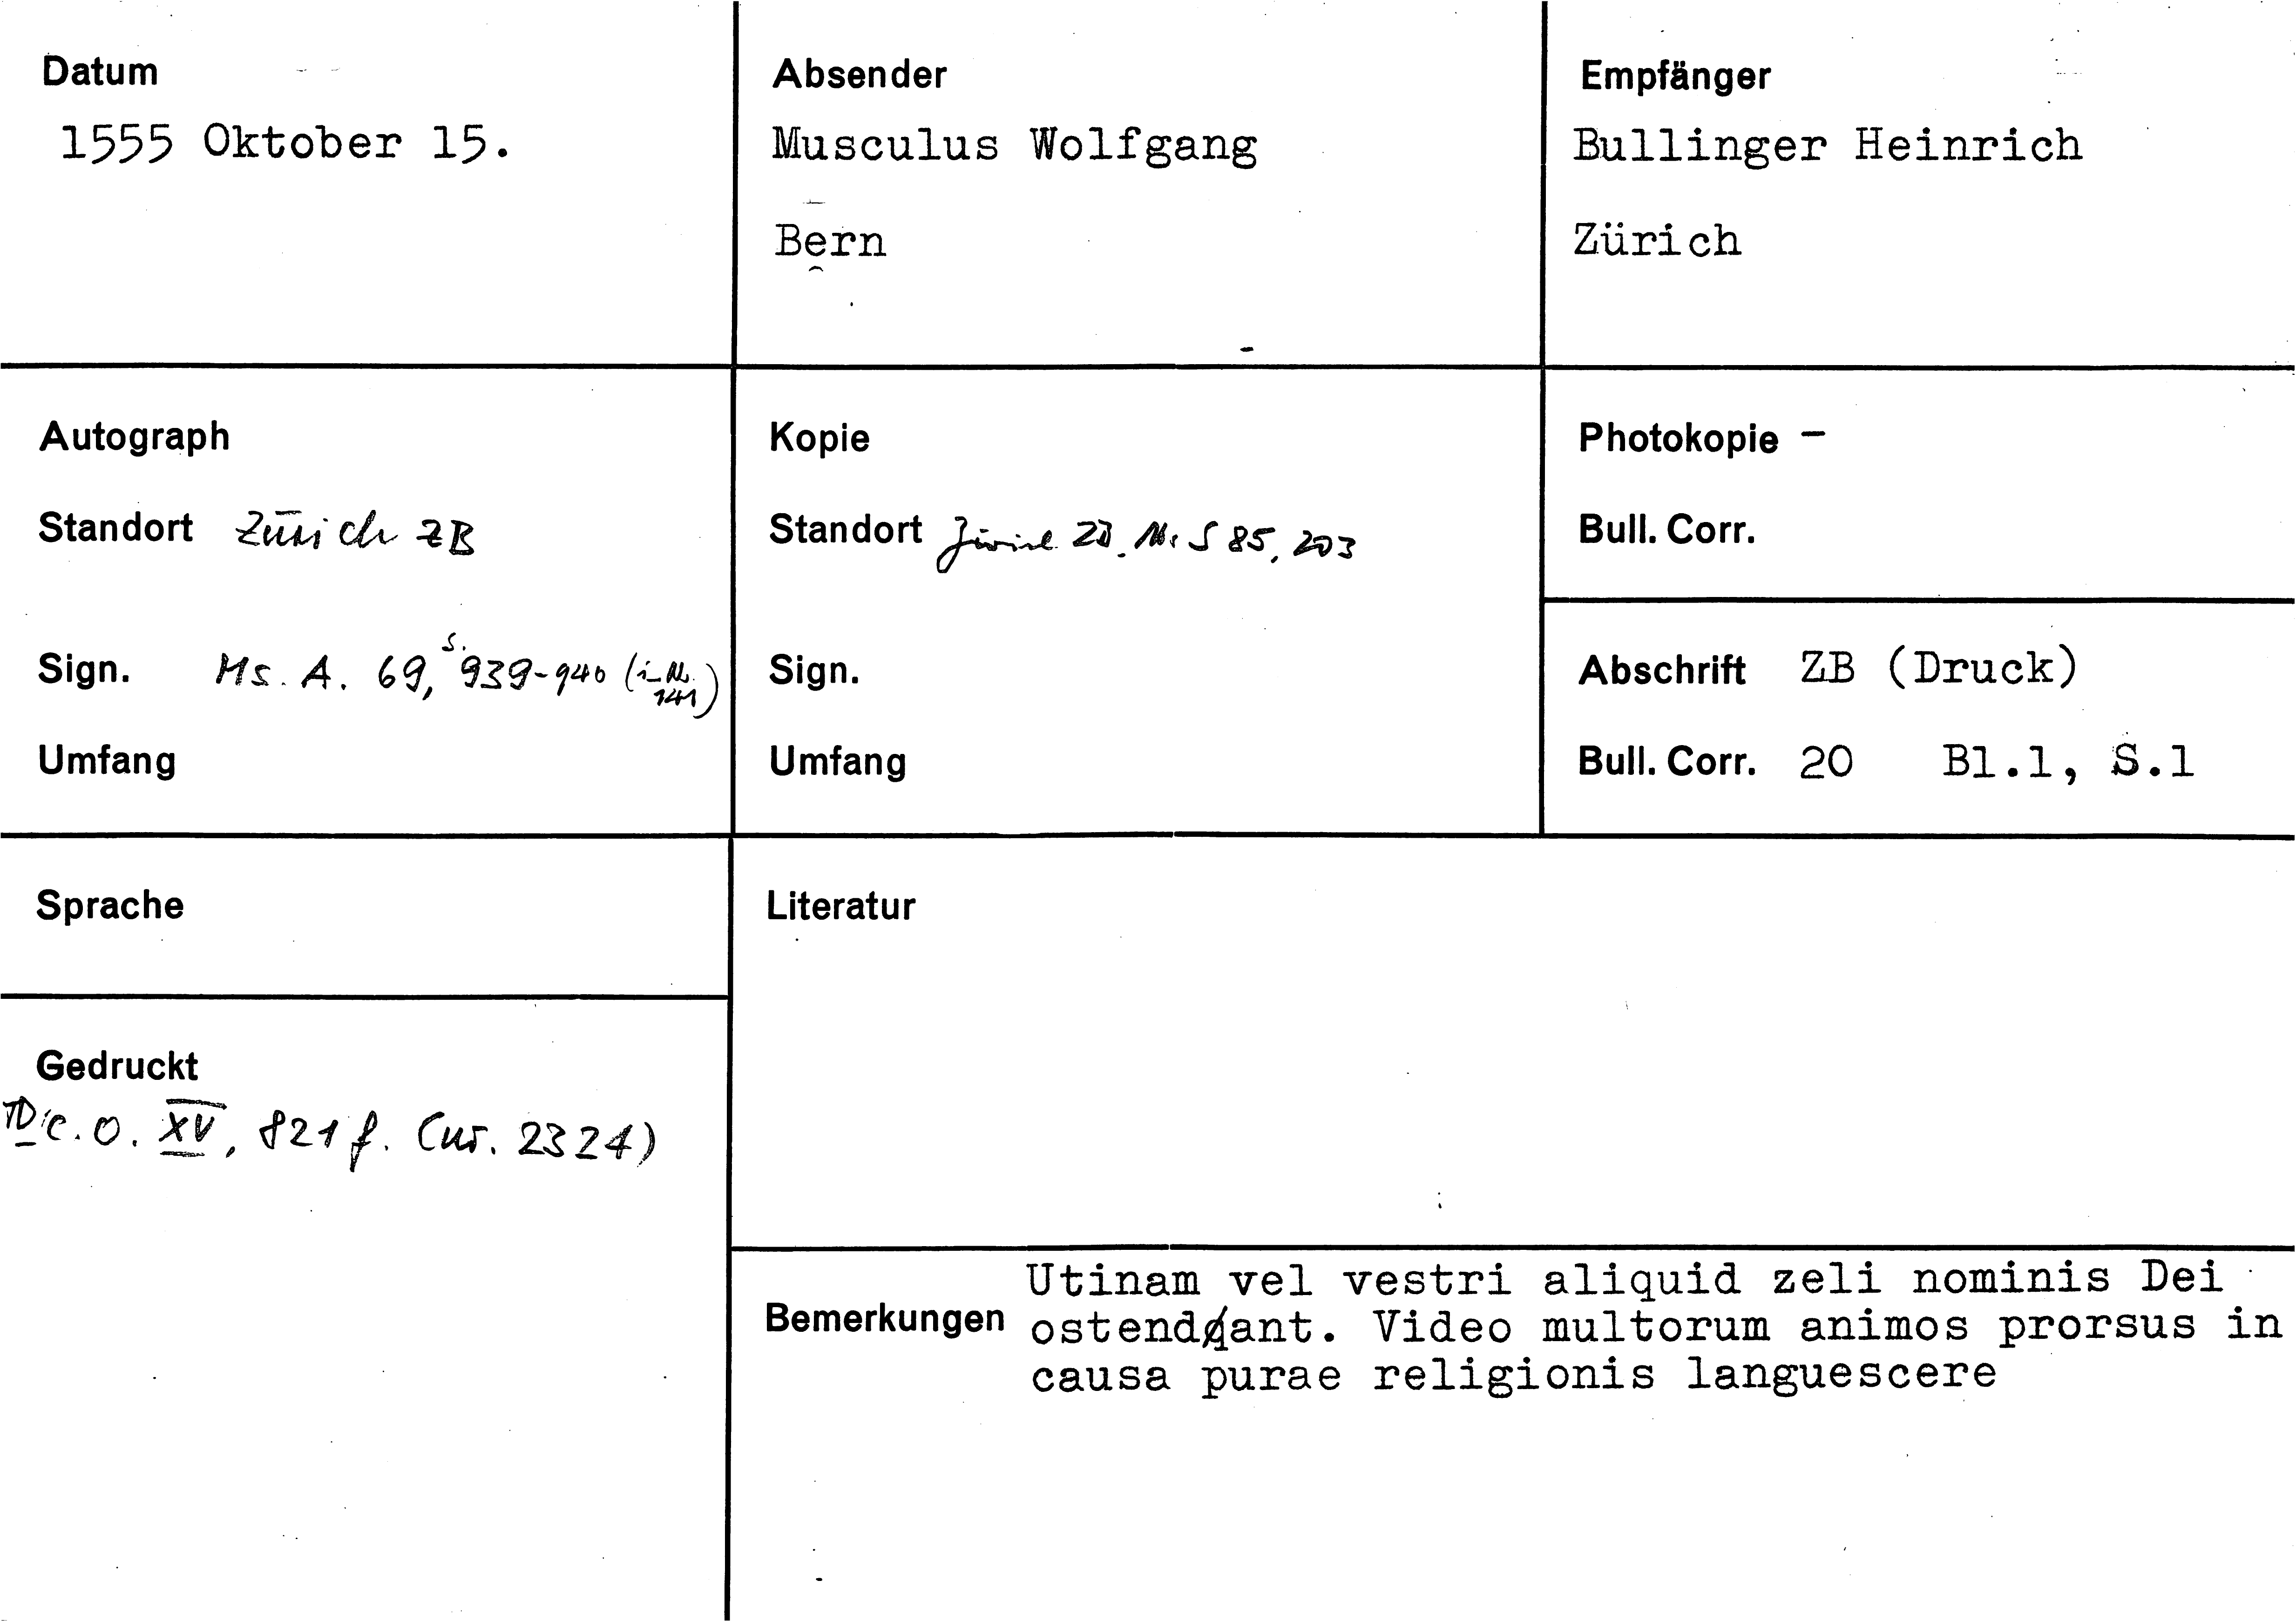 Datum
1555 Oktober 15.
Absender
Musculus Wolfgang
Bern
Empfänger
Bullinger Heinrich
Zürich
Autograph
Standort Zürich ZB
Sign. Ms. A. 69, S. 939-940 (in Nr. 141)
Umfang
Kopie
Standort Zürich ZB. Ms S 85, 203
Sign.
Umfang
Photokopie -
Bull. Corr.
Abschrift ZB (Druck)
Bull. Corr. 20 Bl.1, S.1
Sprache
Gedruckt
C.O. XV, 821 f. (nr. 2324)
Literatur
Bemerkungen
Utinam vel vestri aliquid zeli nominis Dei
ostendant. Video multorum animos prorsus in
causa purae religionis languescere